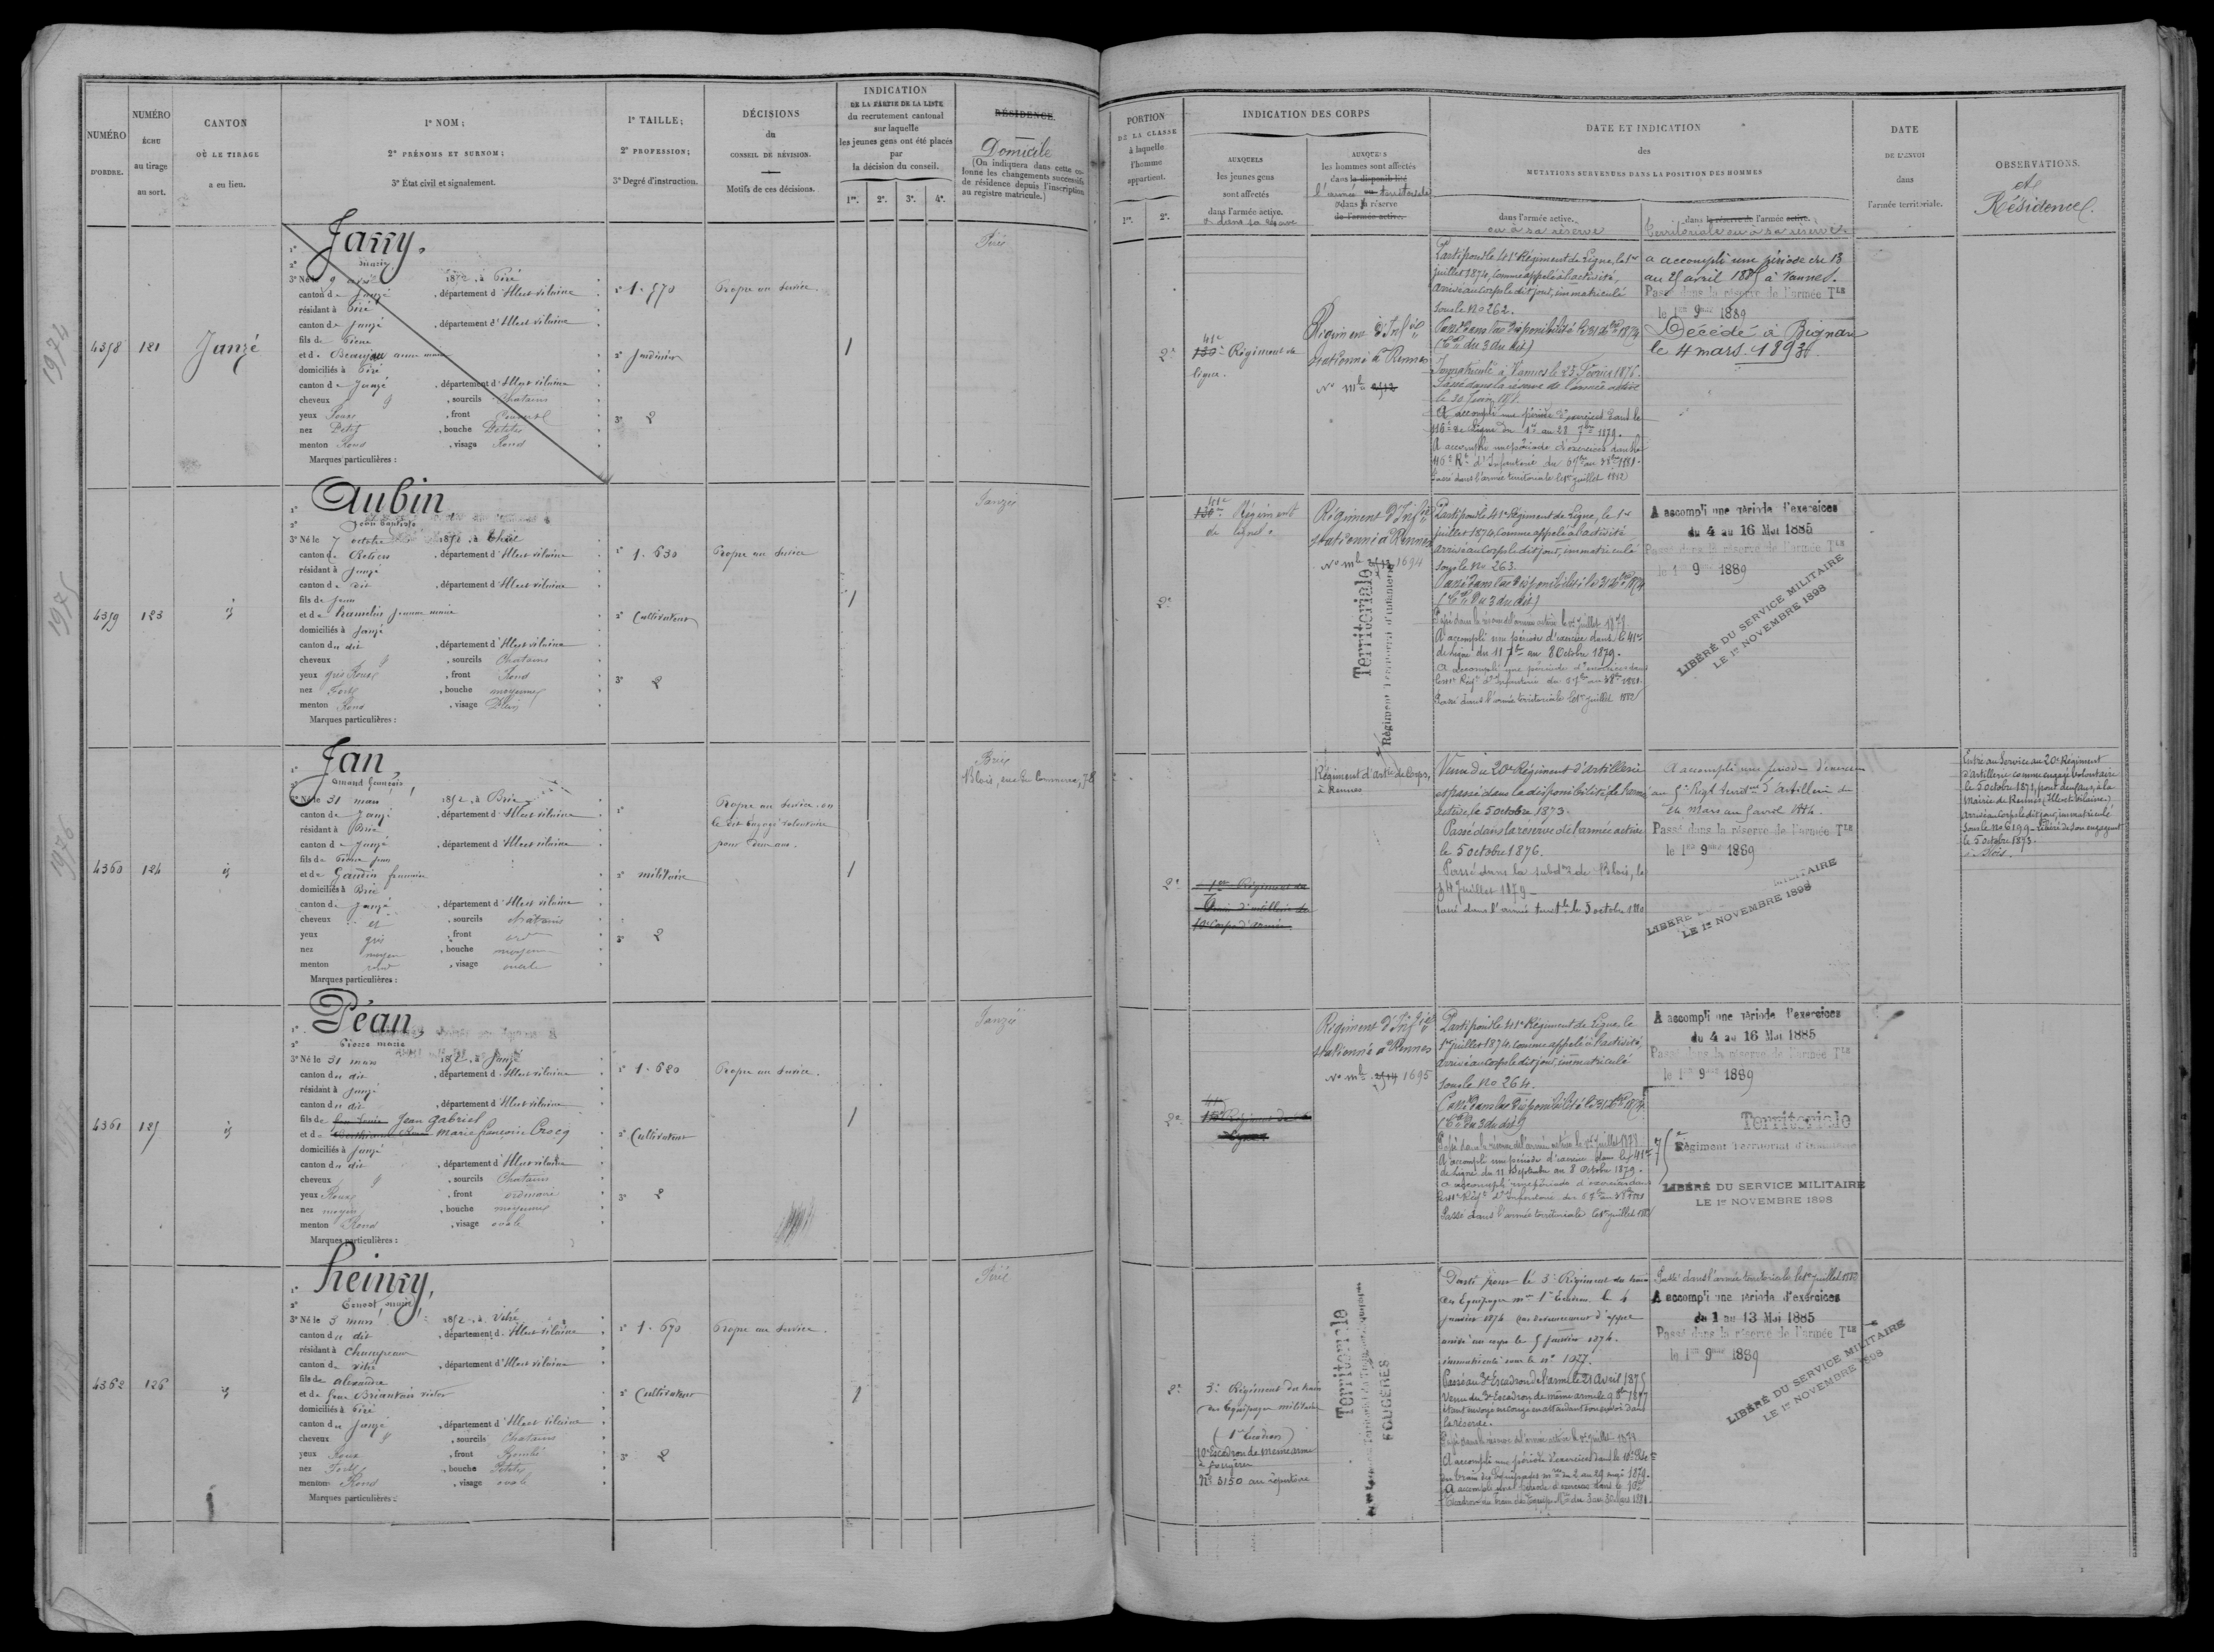 NUMÉRO
D'ORDRE.
NUMÉRO
ÉCHU
au tirage
au sort.
CANTON
OÙ LE TIRAGE
a eu lieu.
1º NOM;
2º PRÉNOMS ET SURNOM;
3º État civil et signalement.
1º TAILLE;
2º PROFESSION;
3º Degré d'instruction.
DÉCISIONS
du
CONSEIL DE RÉVISION.
Motifs de ces décisions.
INDICATION
DE LA PARTIE DE LA LISTE
du recrutement cantonal
sur laquelle
les jeunes gens ont été placés
par
la décision du conseil.
1re. 2e. 3e. 4e.
RÉSIDENCE
Domicile
(On indiquera dans cette colonne les changements successifs
de résidence depuis l'inscription
au registre matricule.)
PORTION
DE LA CLASSE
à laquelle
l'homme
appartient.
1re. 2e.
INDICATION DES CORPS
AUXQUELS
les jeunes gens
sont affectés
dans l'armée active.
ou dans sa réserve
AUXQUELS
les hommes sont affectés
dans la disponibilité
l'armée territoriale
dans la réserve
de l'armée active.
DATE ET INDICATION
des
MUTATIONS SURVENUES DANS LA POSITION DES HOMMES
dans l'armée active.
ou à sa réserve
dans la réserve de l'armée active.
Territoriale ou à sa réserve
DATE
DE L'ENVOI
dans
l'armée territoriale.
OBSERVATIONS.
et
Résidence.
1974
4358
121
Janzé
Jarry,
1º
2º marie
3º Né le 9 1852, à Piré
canton de Janzé, département d'Ille et vilaine
résidant à Piré
canton de Janzé, département d'Ille et vilaine
fils de Pierre
et de Beaujau anne marie
domiciliés à Piré
canton de Janzé, département d'Ille et vilaine
cheveux, sourcils Chatains
yeux Roux, front
nez Petit, bouche Petite
menton Rond, visage Rond
Marques particulières :
1º 1.570
2º Jardinier
3º 2
Propre au service
1
Piré
2e
41e
130e Régiment de
ligne.
Régiment d'Infie
stationné à Rennes
Nº mle 2512
Parti pour le 41e Régiment de Ligne, le 1er
juillet 1874, comme appelé à l'activité,
arrivé au corps le dit jour, immatriculé
sous le Nº 262.
Passé dans la disponibilité le 31 Xbre 1874
(Cre du 3 du dit)
Immatriculé à Vannes le 25 Février 1876.
Passé dans la réserve de l'armée active
A accompli une période d'exercices dans le
116e de Ligne du 1er au 28 7bre 1879.
A accompli une période d'exercices dans le
116e Rt d'Infanterie
Passé dans l'armée territoriale le 1er juillet 1882
a accompli une période du 13
au 25 avril 1885 à Vannes.
Passé dans la réserve de l'armée Tle
le 1er 9bre 1889
Décédé à Bignan
le 4 mars 1893.
1975
4359
123
id
Aubin
1º
2º Jean baptiste
3º Né le 7 octobre 1852, à Theil
canton de Retiers, département d'Ille et vilaine
résidant à Janzé
canton de dit, département d'Ille et vilaine
fils de Jean
et de hamelin Jeanne marie
domiciliés à Janzé
canton du dit, département d'Ille et vilaine
cheveux, sourcils Chatains
yeux gris Roux, front Rond
nez Fort, bouche moyenne
menton Rond, visage Plein
Marques particulières :
1º 1.630
2º Cultivateur
3º 2
Propre au service
1
Janzé
2e
41e
130e Régiment
de ligne.
Régiment d'Infie
stationné à Rennes
Nº mle 2513 1694
Territoriale
Régiment Territorial d'Infanterie
Parti pour le 41e Régiment de Ligne, le 1er
juillet 1874, comme appelé à l'activité,
arrivé au corps le dit jour, immatriculé
sous le Nº 263.
Passé dans la disponibilité le 31 Xbre 1874
(Cre du 3 du dit)
Passé dans la réserve de l'armée active le 1er juillet
A accompli une période d'exercice dans le 41e
de ligne du 11 7bre au 8 Octobre 1879.
A accompli une période d'exercices dans
le 41e Régt d'Infanterie
Passé dans l'armée territoriale le 1er juillet 1882
A accompli une période d'exercices
du 4 au 16 Mai 1885
Passé dans la réserve de l'armée Tle
le 1er 9bre 1889
LIBÉRÉ DU SERVICE MILITAIRE
LE 1er NOVEMBRE 1898
1976
4360
124
id
Jan,
1º
2º amand françois,
3º Né le 31 mars 1852, à Brie
canton de Janzé, département d'Ille et vilaine
résidant à Brie
canton de Janzé, département d'Ille et vilaine
fils de Pierre Jean
et de Gandin françoise
domiciliés à Brie
canton de Janzé, département d'Ille et vilaine
cheveux et, sourcils chatains
yeux gris, front
nez moyen, bouche moyenne
menton rond, visage ovale
Marques particulières :
2º militaire
3º 2
Propre au service. ou
le dit engagé volontaire
pour deux ans.
1
Brie
Blois, rue du Commerce, 78
2e
1er Régiment
10e Corps d'armée
Régiment d'artie de Corps,
à Rennes
Venu du 20e Régiment d'artillerie
et passé dans la disponibilité de l'armée
active, le 5 octobre 1873.
Passé dans la réserve de l'armée active
le 5 octobre 1876.
Passé dans la subdon de Blois, le
24 Juillet 1879
Passé dans l'armée terrtle le 5 octobre 1880
A accompli une période d'exercices
au 5e Régt territal d'Artillerie du
24 Mars au 5 avril 1884.
Passé dans la réserve de l'armée Tle
le 1er 9bre 1889
LIBÉRÉ MILITAIRE
LE 1er NOVEMBRE 1898
Entré au service au 20e Régiment
d'artillerie comme engagé volontaire
le 5 octobre 1871, pour deux ans, à la
Mairie de Rennes, (Ille et Vilaine)
arrivé au corps le dit jour, immatriculé
sous le nº 6199. Libéré de son engagemt
le 5 octobre 1873.
à Blois.
4361
125
id
Péan,
1º
2º Pierre marie
3º Né le 31 mars 1852, à Janzé
canton du dit, département d'Ille et vilaine
résidant à Janzé
canton du dit, département d'Ille et vilaine
fils de Jean Gabriel
et de Marie françoise Crocq
domiciliés à Janzé
canton du dit, département d'Ille et vilaine
cheveux, sourcils Chatains
yeux Roux, front ordinaire
nez moyen, bouche moyenne
menton Rond, visage ovale
Marques particulières :
1º 1.620
2º Cultivateur
3º 2
Propre au service.
1
Janzé
2e
41e
130e Régiment de
Ligne
Régiment d'Infie
stationné à Rennes
Nº mle 2514 1695
Parti pour le 41e Régiment de Ligne, le
1er juillet 1874, comme appelé à l'activité,
arrivé au corps le dit jour, immatriculé
sous le Nº 264.
Passé dans la disponibilité le 31 Xbre 1874
(Cre du 3 du dit)
Passé dans la réserve de l'armée active le 1er juillet
A accompli une période d'exercice dans le 41e
de Ligne du 11 Septembre au 8 Octobre 1879.
A accompli une période d'exercices dans
le 41e Régt d'Infanterie
Passé dans l'armée territoriale le 1er juillet 1882
A accompli une période d'exercices
du 4 au 16 Mai 1885
Passé dans la réserve de l'armée Tle
le 1er 9bre 1889
Territoriale
Régiment Territorial d'Infanterie
LIBÉRÉ DU SERVICE MILITAIRE
LE 1er NOVEMBRE 1898
4362
126
id
heinry,
1º
2º Ernest marie
3º Né le 3 mars 1852, à Vitré
canton du dit, département d'Ille et vilaine
résidant à Champeaux
canton de vitré, département d'Ille et vilaine
fils de alexandre
et de
domiciliés à Piré
canton de Janzé, département d'Ille et vilaine
cheveux, sourcils Chatains
yeux Roux, front Bombé
nez Fort, bouche Petite
menton Rond, visage ovale
Marques particulières :
1º 1.670
2º Cultivateur
3º 2
Propre au service.
1
Piré
2e
3e Régiment du train
des équipages militaires
(1er Escadron)
10e Escadron de même arme
à Fougères
Nº 3150 au répertoire
Territoriale
FOUGÈRES
Parti pour le 3e Régiment du train
des Equipages mres 1er Escadron le 4
janvier 1874 par devancement d'appel
arrivé au corps le 5 janvier 1874.
immatriculé sous le nº 1027.
Passé au 3e Escadron de l'arme le 21 avril 1875
étant envoyé en congé en attendant son envoi dans
la réserve.
A accompli une période d'exercices dans le 10e
du train des Equipages mres du 2 au 29 mai 1879.
A accompli une période d'exercices dans le 10e
Escadron du train des Equip. Mres du 3 au 30 Mars 1881.
Passé dans l'armée territoriale le 1er juillet 1882
A accompli une période d'exercices
du 1 au 13 Mai 1885
Passé dans la réserve de l'armée Tle
le 1er 9bre 1889
LIBÉRÉ DU SERVICE MILITAIRE
LE 1er NOVEMBRE 1898